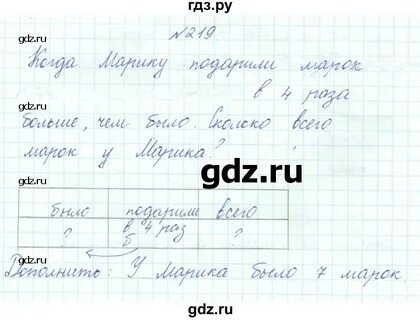 гдз.рф
№219
gdz.ru gdz.ru
Когда Марику подарили марок
в 4 раза
gdz.ru gdz.ru
больше, чем было. Сколько всего
марок у Марика?
gdz.ru
gdz.ru gdz.ru
было подарили всего
? в 4 раз б ?
gdz.ru gdz.ru
Дополнить: У Марика было 7 марок.
gdz.ru gdz.ru